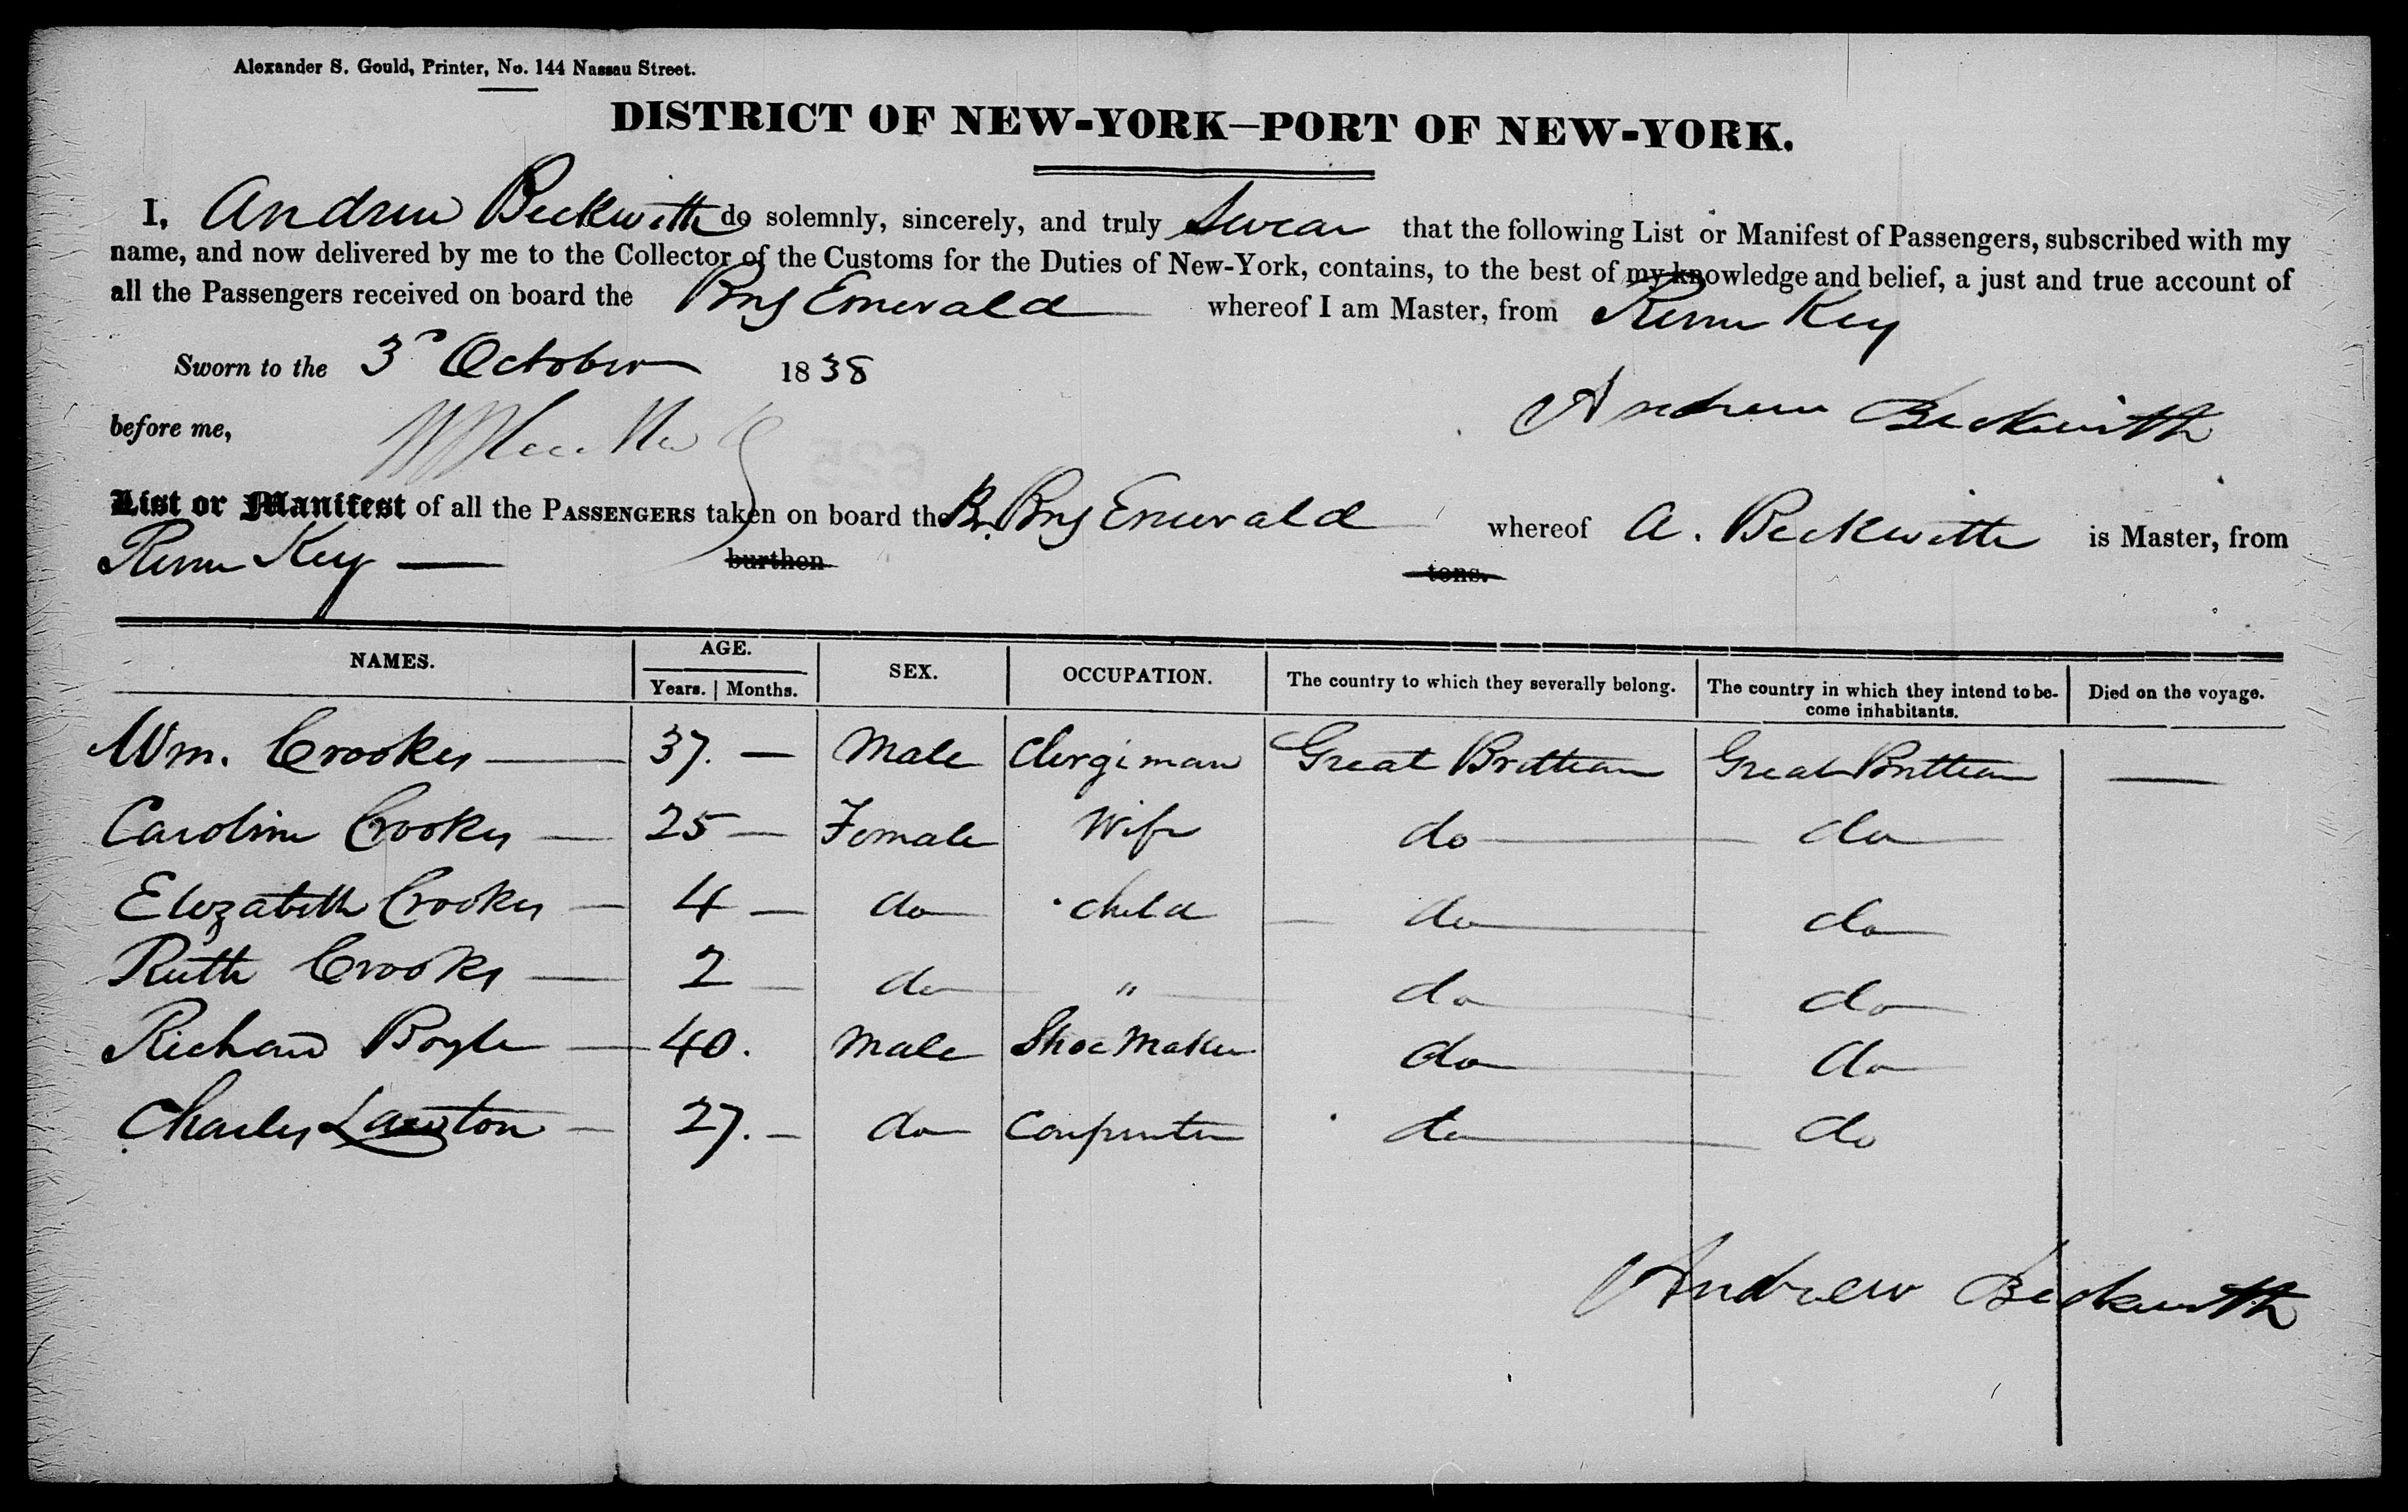 Alexander S. Gould, Printer, No. 144 Nassau Street.
DISTRICT OF NEW-YORK—PORT OF NEW-YORK.
I, Andrew Beckwith do solemnly, sincerely, and truly Swear that the following List or Manifest of Passengers, subscribed with my
name, and now delivered by me to the Collector of the Customs for the Duties of New-York, contains, to the best of my knowledge and belief, a just and true account of
all the Passengers received on board the Brig Emerald whereof I am Master, from Key
Sworn to the 3d October 1838
Andrew Beckwith
before me,
List or Manifest of all the PASSENGERS taken on board the Br. Brig Emerald whereof A. Beckwith is Master, from
Key — burthen tons.
NAMES. AGE. SEX. OCCUPATION. The country to which they severally belong. The country in which they intend to be- Died on the voyage.
Years. Months. come inhabitants.
Wm. Crookes — 37. — Male Clergiman Great Brittian Great Brittian —
Caroline Crookes — 25 — Female Wife do do
Elezabeth Crookes — 4 — do child do do
Ruth Crookes — 2 — do " do do
Richard Boyle — 40. Male Shoe Maker do do
Charles Lawton — 27. — do Carpenter do do
Andrew Beckwith